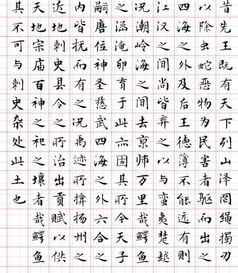 昔先王既有天下列山泽罔绳擉刃
以除虫蛇恶物为民害者驱而出之
四海之外及后王德薄不能远有则
江汉之间尚皆弃之以与蛮夷楚越
况潮岭海之间去京师万里哉鳄鱼
之涵淹卵育于此亦固其所今天子
嗣唐位神圣慈武四海之外六合之
内皆抚而有之况禹迹所揜扬州之
近地刺史县令之所治出贡赋以供
天地宗庙百神之祀之壤者哉鳄鱼
其不可与刺史杂处此土也